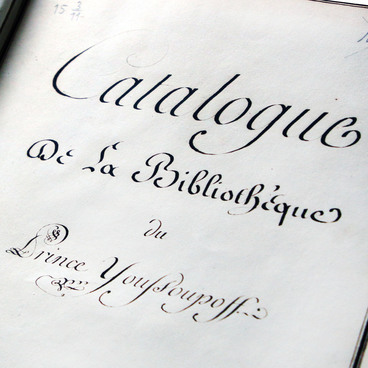 15 3/11
Catalogue
De La Bibliothèque
du
Prince Youssoupoff